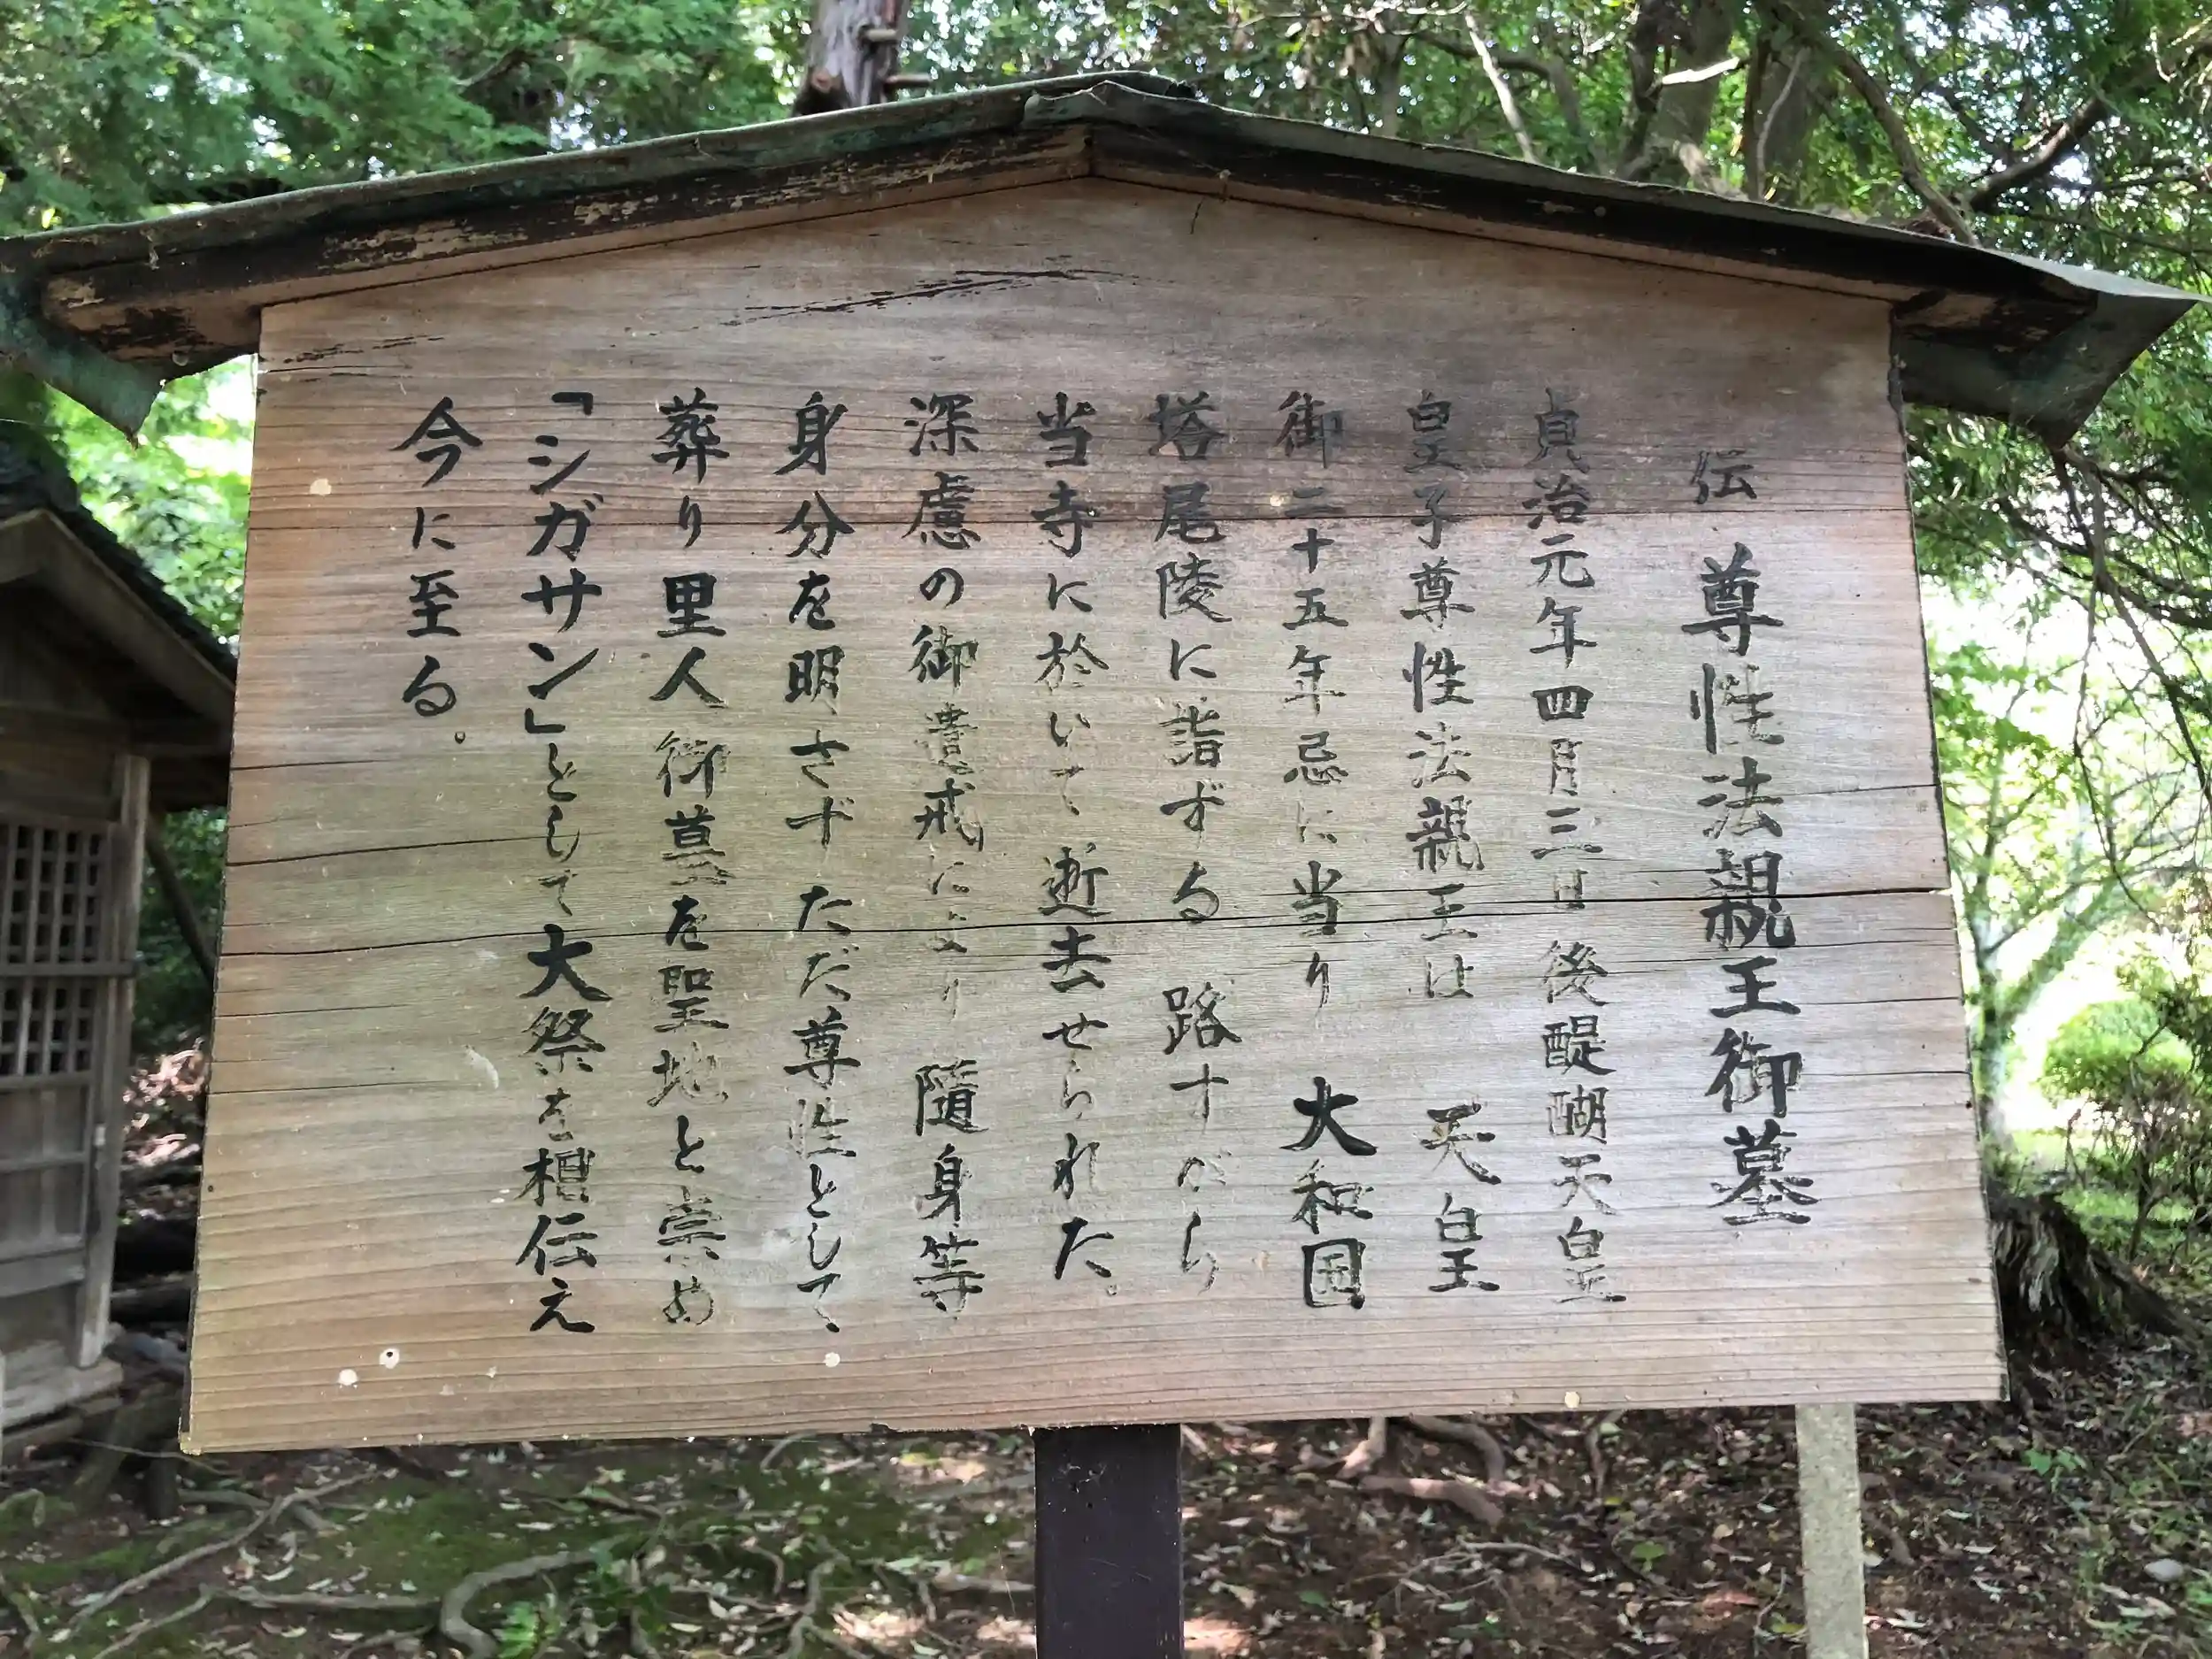 伝 尊性法親王御墓
貞治元年四月三日 後醍醐天皇
皇子尊性法親王は 天皇
御二十五年忌に当り 大和国
塔尾陵に詣ずる 路すがら
当寺に於いて 逝去せられた。
深慮の御遺戒により 隨身等
身分を明さず ただ尊性として
葬り里人御墓を聖地と崇め
「シガサン」として大祭を相伝え
今に至る。